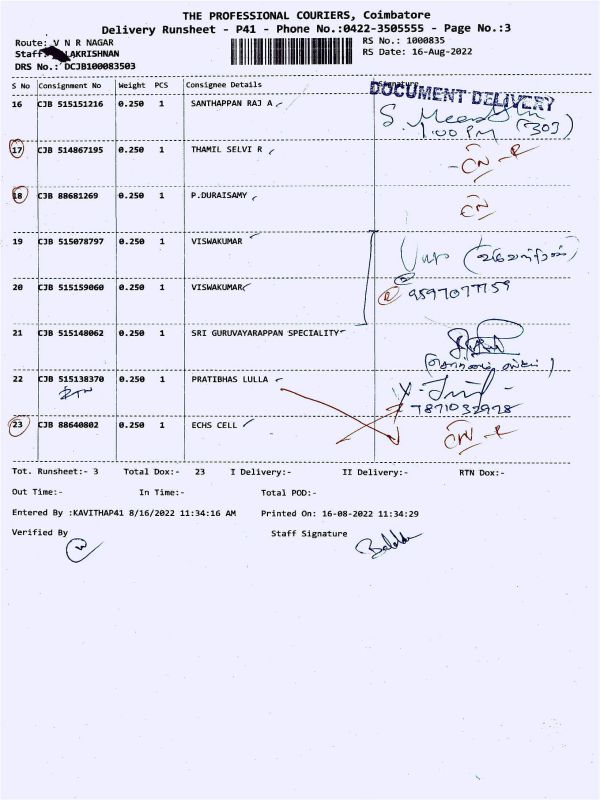 THE PROFESSIONAL COURIERS, Coimbatore
Delivery Runsheet - P41 - Phone No.:0422-3505555 - Page No.:3
Route: V N R NAGAR RS No.: 1000835
Staff: LAKRISHNAN RS Date: 16-Aug-2022
DRS No.: DCJB100083503
S No Consignment No Weight PCS Consignee Details Signature
DOCUMENT DELIVERY
16 CJB 515151216 0.250 1 SANTHAPPAN RAJ A S.
1.00 PM (303)
17 CJB 514867195 0.250 1 THAMIL SELVI R CN - R
18 CJB 88681269 0.250 1 P.DURAISAMY CN
19 CJB 515078797 0.250 1 VISWAKUMAR
20 CJB 515159060 0.250 1 VISWAKUMAR R 9597077159
21 CJB 515148062 0.250 1 SRI GURUVAYARAPPAN SPECIALITY
22 CJB 515138370 0.250 1 PRATIBHAS LULLA
RTN 7871032978
23 CJB 88640802 0.250 1 ECHS CELL CN - R
Tot. Runsheet:- 3 Total Dox:- 23 I Delivery:- II Delivery:- RTN Dox:-
Out Time:- In Time:- Total POD:-
Entered By :KAVITHAP41 8/16/2022 11:34:16 AM Printed On: 16-08-2022 11:34:29
Verified By Staff Signature